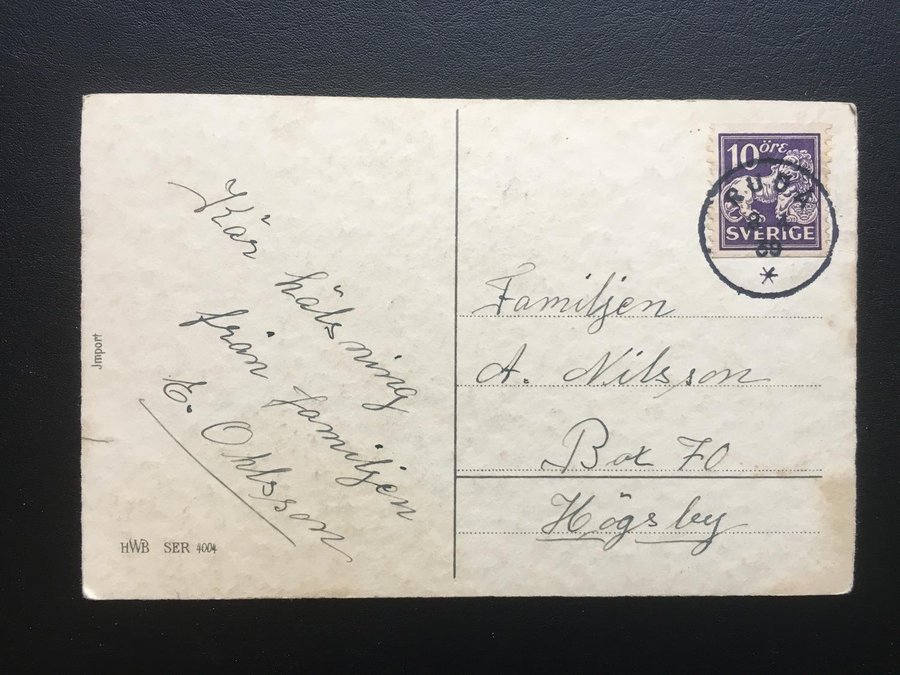 Kär
hälsning
från familjen
E. Ohlsson
Jmport
HWB SER 4004
10 öre
SVERIGE
RUDA
39
*
Familjen
A. Nilsson
Box 70
Högsby